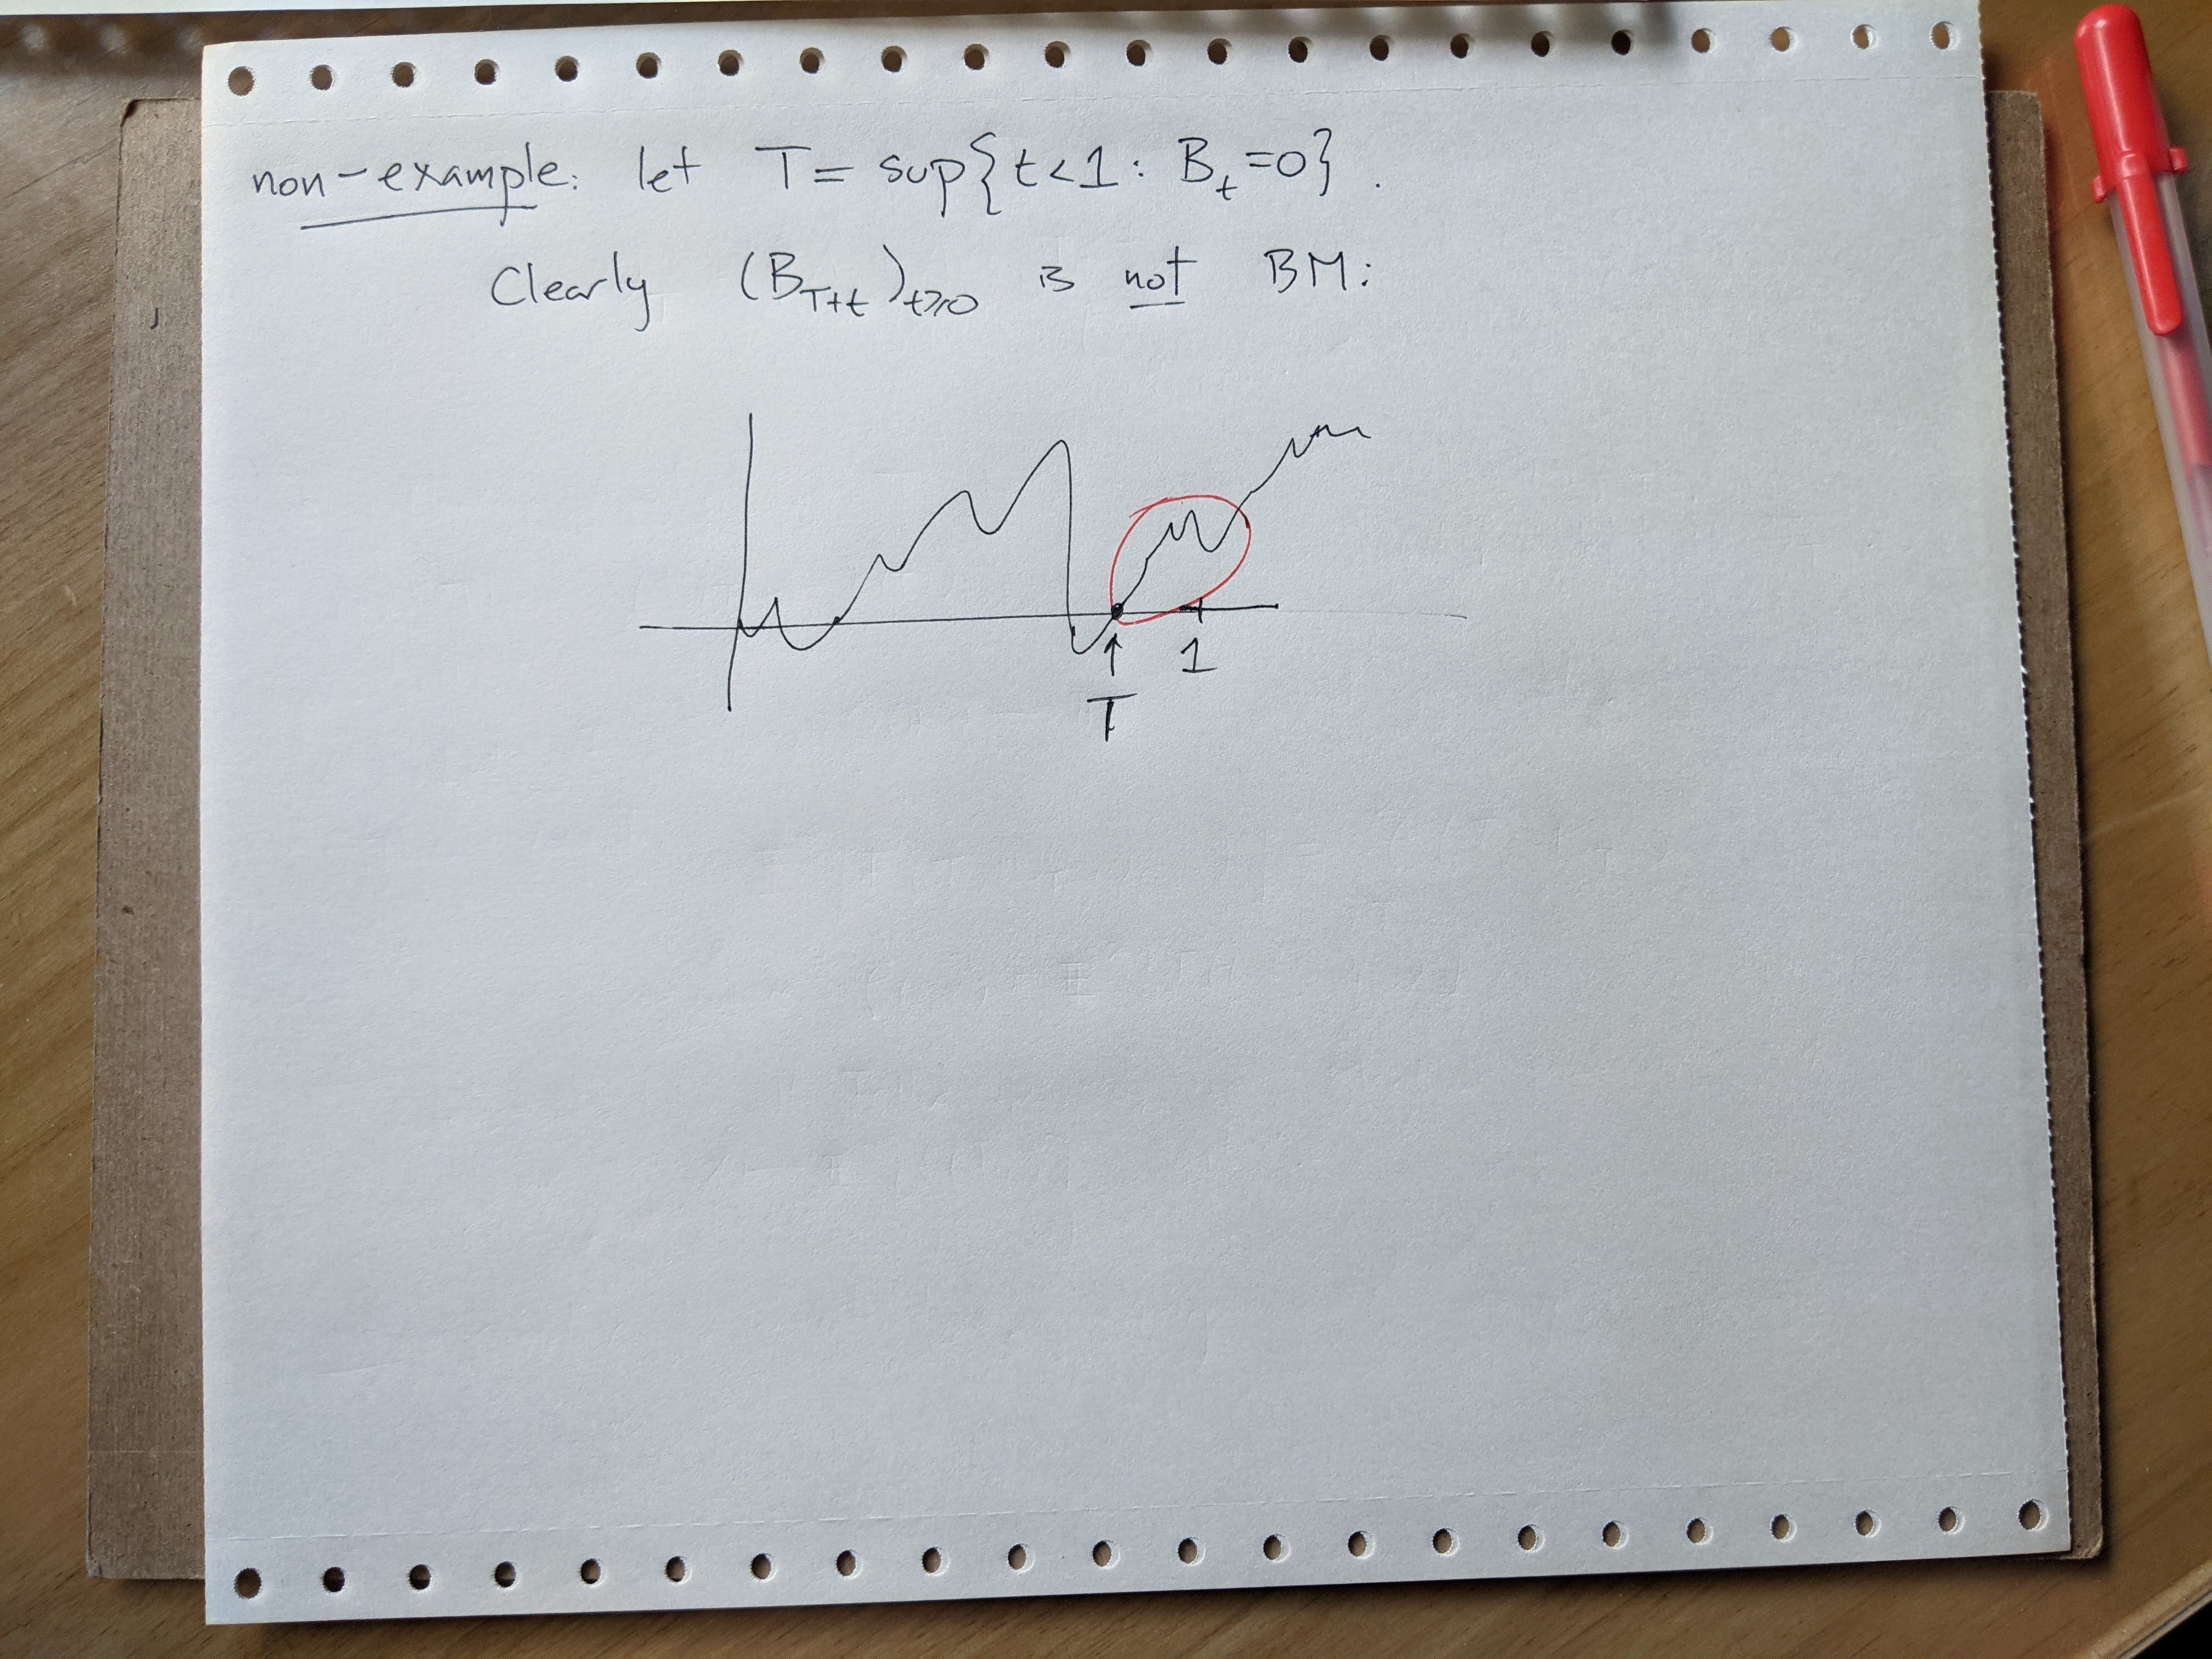 non-example: let T = sup{t<1: B_t=0}.
Clearly (B_{T+t})_{t≥0} is not BM:
1
T